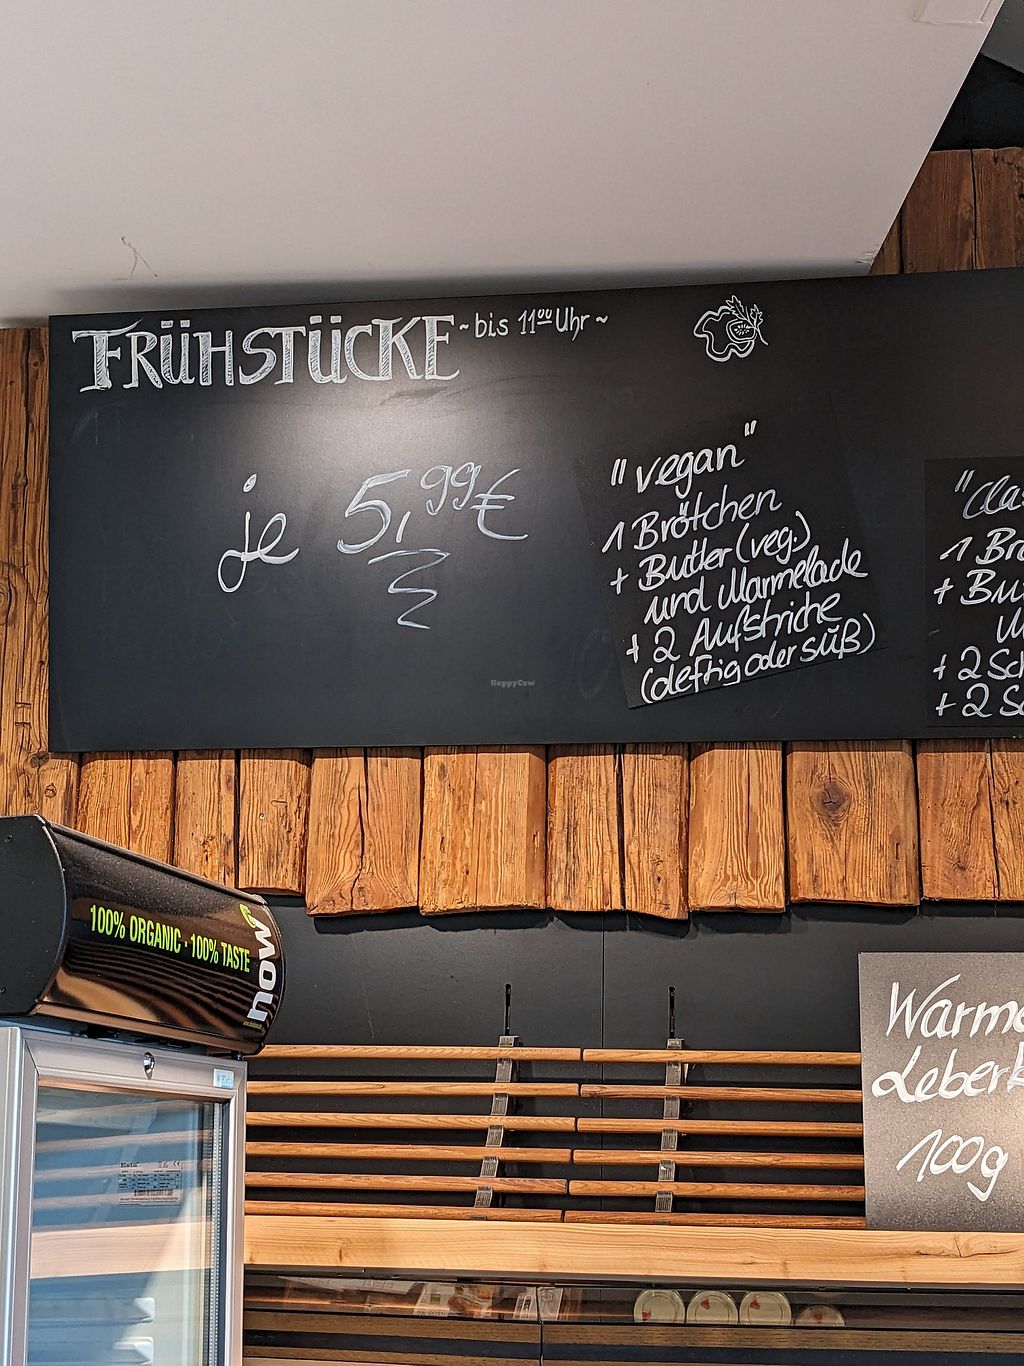 FRÜHSTÜCKE ~ bis 11⁰⁰ Uhr ~
je 5,99€
"vegan"
1 Brötchen
+ Butter (veg.)
und Marmelade
+ 2 Aufstriche
(deftig oder süß)
"Cla
1 Brö
+ Bu
+ 2 Sch
+ 2 S
HappyCow
100% ORGANIC · 100% TASTE
now
Warme
Leberk
100g